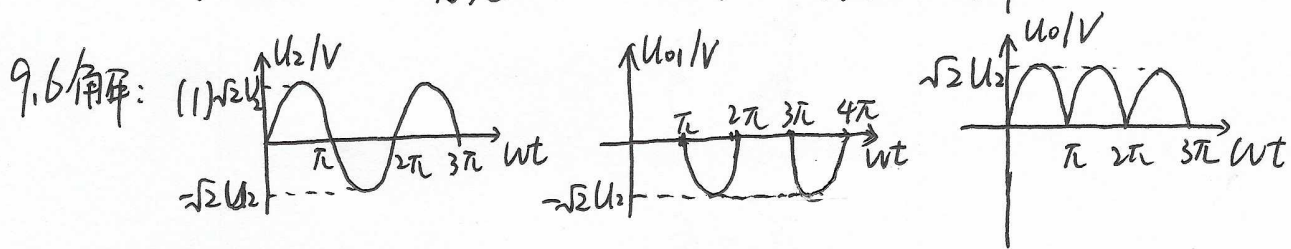 9.6解: (1) √2U₂ u₂/V π 2π 3π wt -√2U₂
u₀₁/V π 2π 3π 4π wt -√2U₂
u₀/V √2U₂ π 2π 3π wt